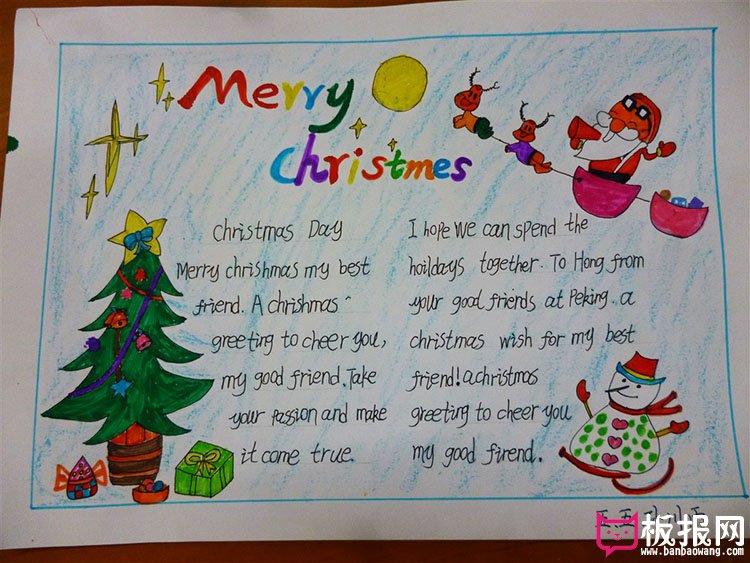 Merry
christmes
Christmas Day
Merry chrishmas my best
friend. A chrishmas
greeting to cheer you,
my good friend. Take
your passion and make
it come true.
I hope we can spend the
hoildays together. To Hong from
your good friends at Peking. a
christmas wish for my best
friend! a christmas
greeting to cheer you
my good firend.
板报网
www.banbaowang.com